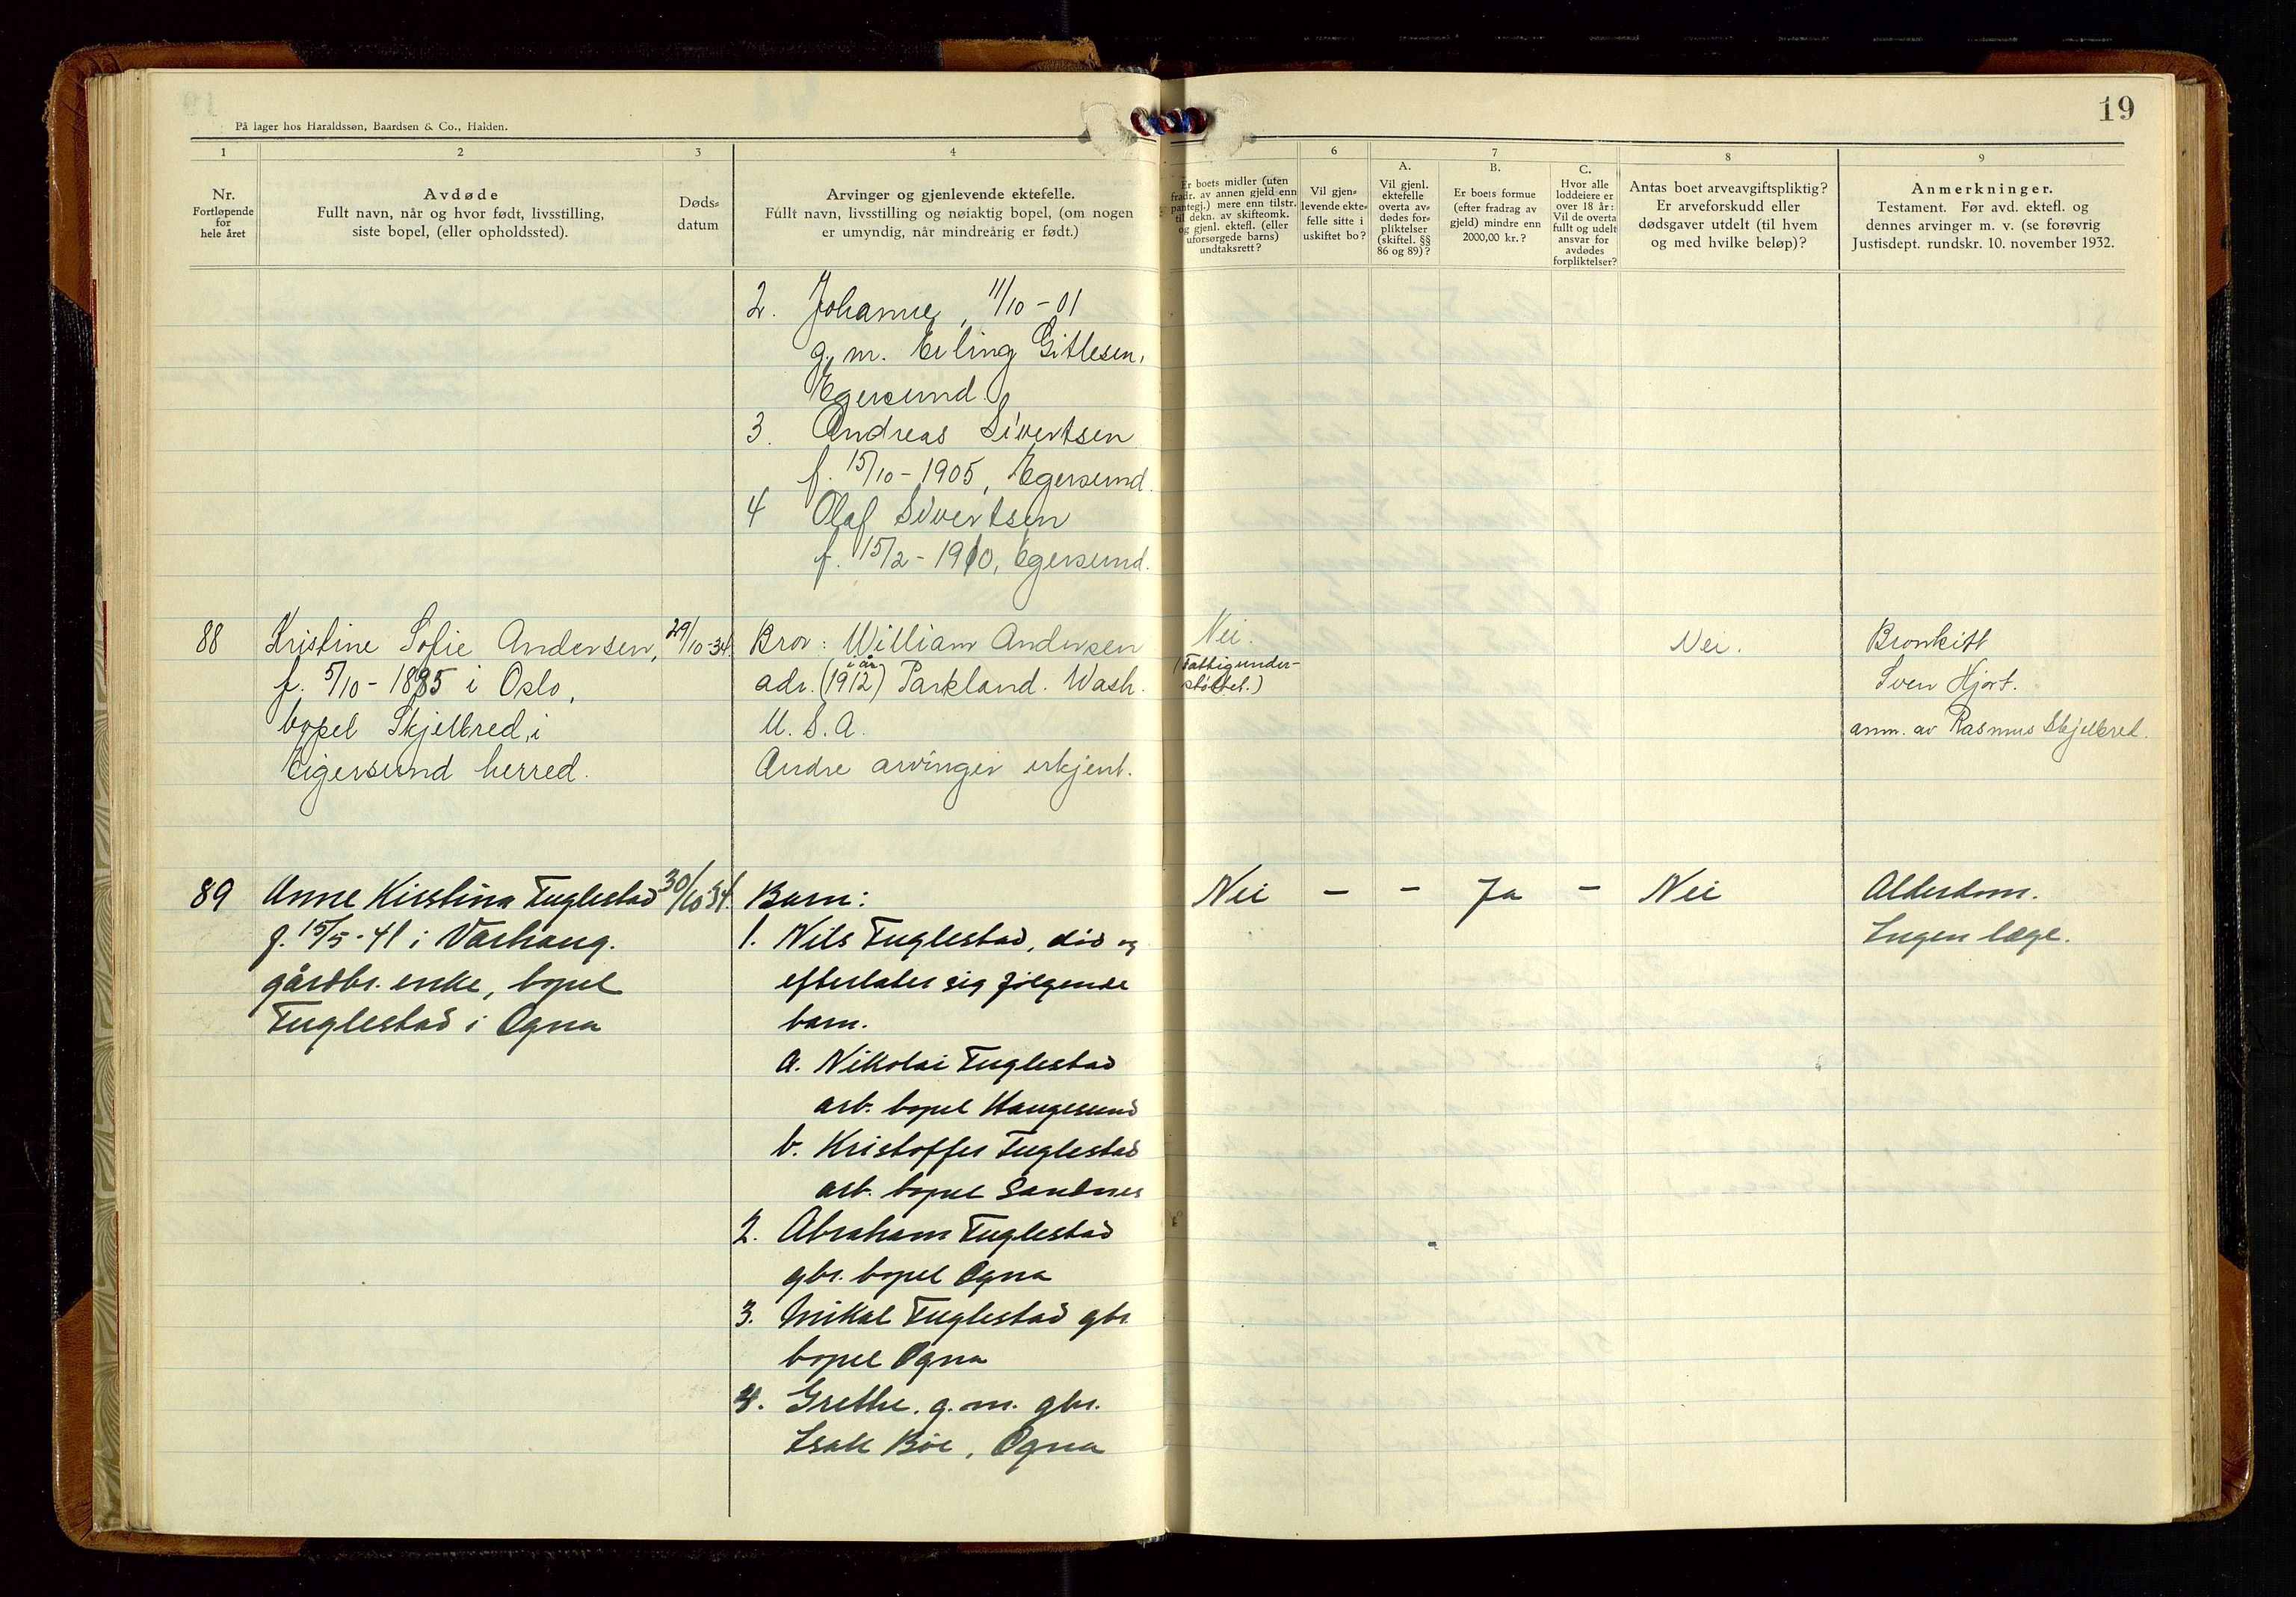 19
På lager hos Haraldssøn, Baardsen & Co., Halden.
1
2
3
4
6
7
8
9
Nr.
Fortløpende
for
hele året
Avdøde
Fullt navn, når og hvor født, livsstilling,
siste bopel, (eller opholdssted).
Døds-
datum
Arvinger og gjenlevende ektefelle.
Fullt navn, livsstilling og nøiaktig bopel, (om nogen
er umyndig, når mindreårig er født.)
Er boets midler (uten
fradr. av annen gjeld enn
pantegj.) mere enn tilstr.
til dekn. av skifteomk.
og gjenl. ektefl. (eller
uforsørgede barns)
undtaksrett?
Vil gjen-
levende ekte-
felle sitte i
uskiftet bo?
A.
Vil gjenl.
ektefelle
overta av-
dødes for-
pliktelser
(skiftel. §§
86 og 89)?
B.
Er boets formue
(efter fradrag av
gjeld) mindre enn
2000,00 kr.?
C.
Hvor alle
loddeiere er
over 18 år:
Vil de overta
fullt og udelt
ansvar for
avdødes
forpliktelser?
Antas boet arveavgiftspliktig?
Er arveforskudd eller
dødsgaver utdelt (til hvem
og med hvilke beløp)?
Anmerkninger.
Testament. Før avd. ektefl. og
dennes arvinger m. v. (se forøvrig
Justisdept. rundskr. 10. november 1932.
2. Johanne, 11/10 - 01
g. m. Erling Gitlesen,
Egersund.
3. Andreas Sivertsen
f. 15/10 - 1905, Egersund.
4 Olaf Sivertsen
f. 15/2 - 1910, Egersund.
88
Kristine Sofie Andersen,
f. 5/10 - 1885 i Oslo,
bopel Skjelbred, i
Eigersund herred.
29/10-34.
Bror: William Andersen
i år
adr. (1912) Parkland. Wash.
U. S. A.
Andre arvinger ukjent.
Nei.
(Fattigunder-
støttet.)
Nei.
Bronkitt
Sven Hjort.
anm. av Rasmus Skjelbred.
89
Anne Kirstina Fuglestad
f. 15/5 - 41 i Varhaug.
gårdbr. enke, bopel
Fuglestad i Ogna
30/10 34.
Barn:
1. Nils Fuglestad, død og
efterlater sig følgende
barn.
a. Nikolai Fuglestad
arb. bopel Haugesund
b. Kristoffer Fuglestad
arb. bopel Sandnes
2. Abraham Fuglestad
gbr. bopel Ogna
3. Mikal Fuglestad gbr.
bopel Ogna
4. Grethe. g. m. gbr.
Isak Bøe, Ogna
Nei - - Ja - Nei
Alderdom.
Ingen læge.